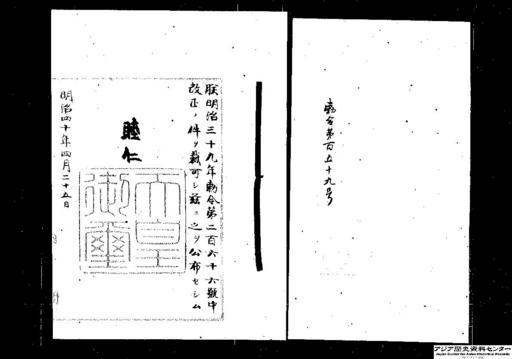 勅令第百五十九号
朕明治三十九年勅令第二百六十六號中
改正ノ件ヲ裁可シ茲ニ之ヲ公布セシム
睦仁
天皇御璽
明治四十年四月二十五日
アジア歴史資料センター
Japan Center for Asian Historical Records